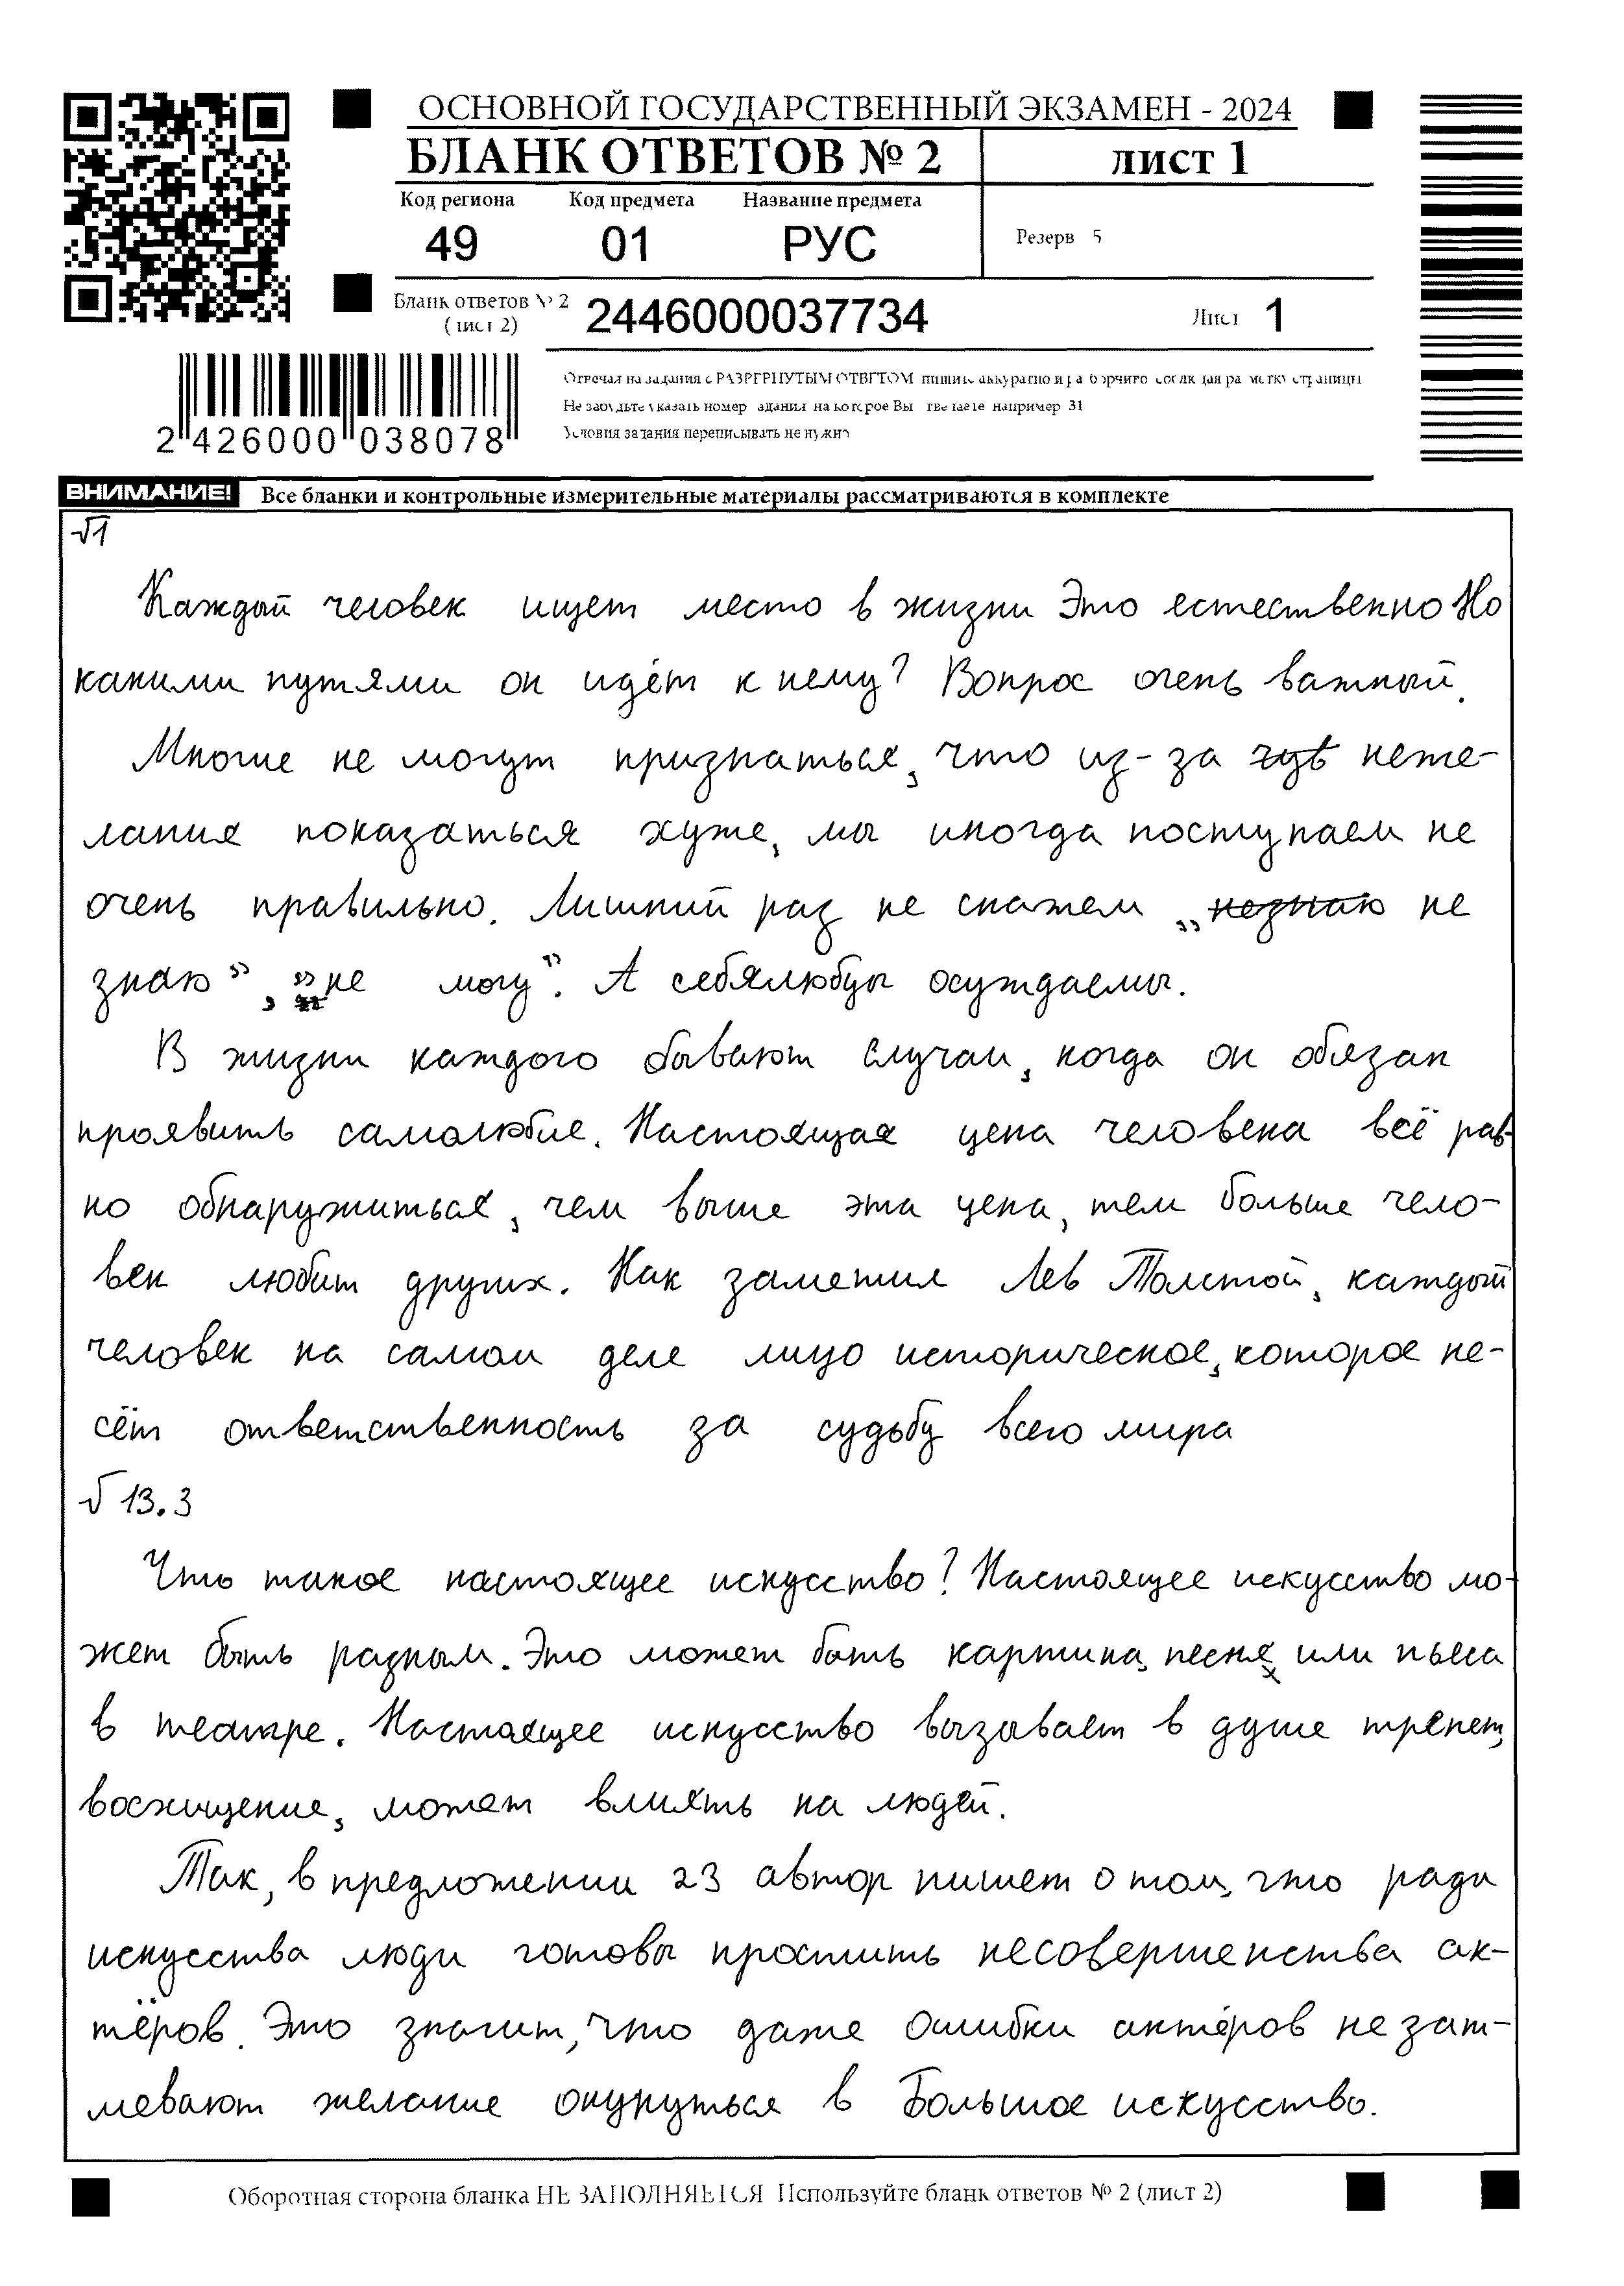 ОСНОВНОЙ ГОСУДАРСТВЕННЫЙ ЭКЗАМЕН - 2024
БЛАНК ОТВЕТОВ № 2
лист 1
Код региона
Код предмета
Название предмета
49
01
РУС
Резерв 5
Бланк ответов № 2
(лист 2)
2446000037734
Лист 1
Отвечая на задания с РАЗВЕРНУТЫМ ОТВЕТОМ пишите аккуратно и разборчиво соблюдая разметку страницы
Не забудьте указать номер задания на которое Вы отвечаете например 31
Условия задания переписывать не нужно
2 426000 038078
ВНИМАНИЕ! Все бланки и контрольные измерительные материалы рассматриваются в комплекте
√1
Каждый человек ищет место в жизни Это естественно Но
какими путями он идёт к нему? Вопрос очень важный.
Многие не могут признаться, что из-за чув неже-
лания показаться хуже, мы иногда поступаем не
очень правильно. Лишний раз не скажем „незнаю не
знаю”, „не могу”. А себялюбцы осуждаемы.
В жизни каждого бывают случаи, когда он обязан
проявить самолюбие. Настоящая цена человека всё рав-
но обнаружиться, чем выше эта цена, тем больше чело-
век любит других. Как заметил Лев Толстой, каждый
человек на самом деле лицо историческое, которое не-
сёт ответственность за судьбу всего мира
√ 13.3
Что такое настоящее искусство? Настоящее искусство мо-
жет быть разным. Это может быть картина, песня, или пьеса
в театре. Настоящее искусство вызывает в душе трепет,
восхищение, может влиять на людей.
Так, в предложении 23 автор пишет о том, что ради
искусства люди готовы простить несовершенства ак-
тёров. Это значит, что даже ошибки актёров не зат-
мевают желание окунуться в Большое искусство.
Оборотная сторона бланка НЕ ЗАПОЛНЯЕТСЯ Используйте бланк ответов № 2 (лист 2)